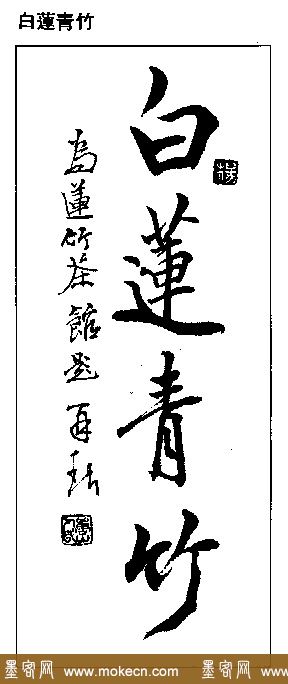 白蓮青竹
白蓮青竹
為蓮竹茶館題
墨客网 www.mokecn.com 墨客网